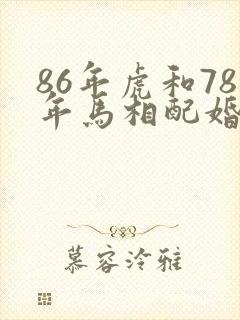 86年虎和78
年马相配婚
慕容泠雅